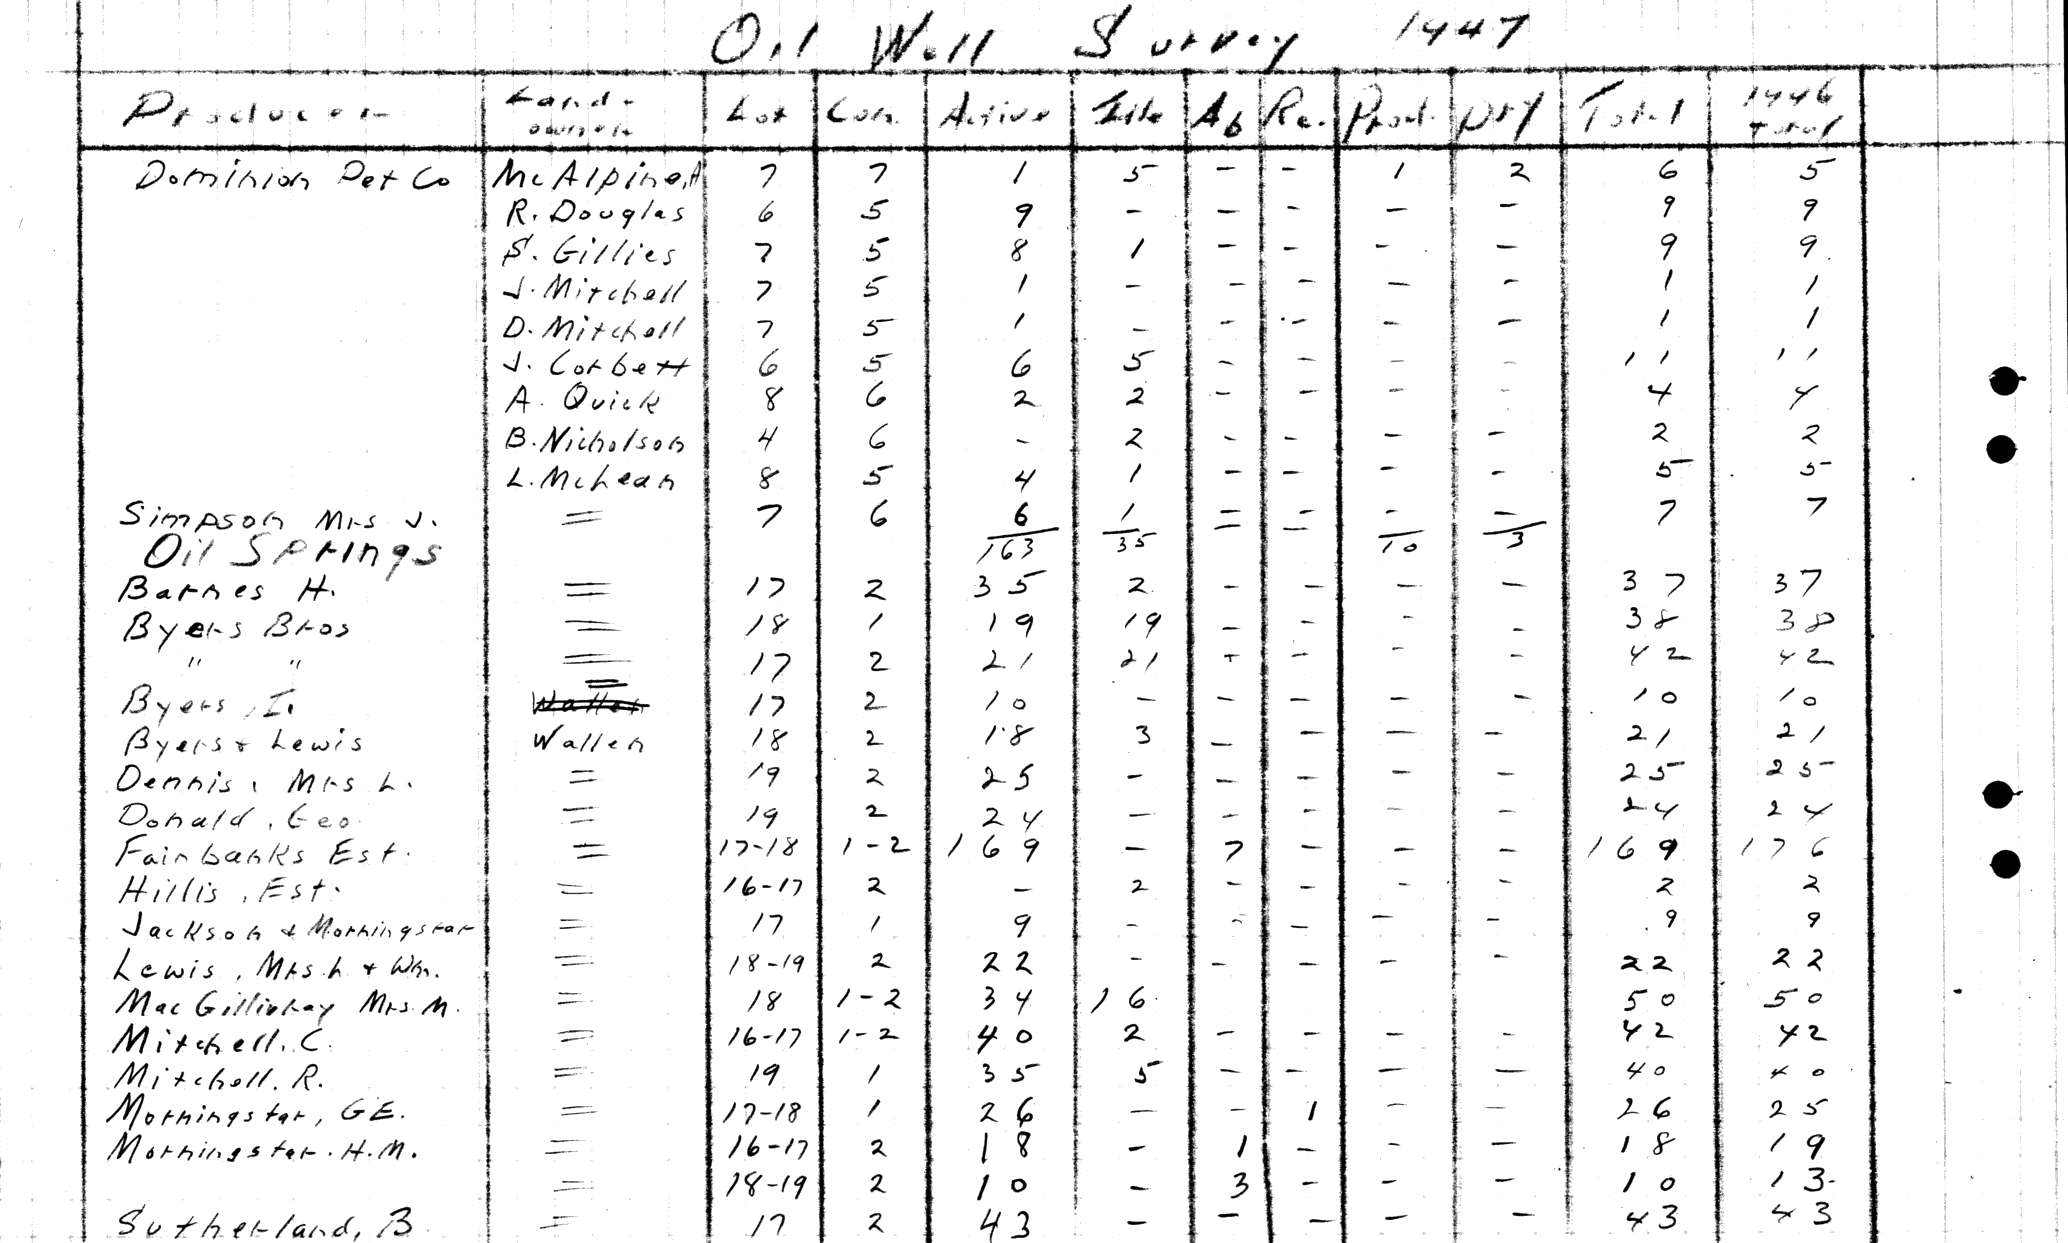 Oil Well Survey 1947
Producer Land-owner Lot Con. Active Idle Ab Re. Prod. Dry Total 1946 total
Dominion Pet Co McAlpine, A 7 7 1 5 - - 1 2 6 5
R. Douglas 6 5 9 - - - - - 9 9
S. Gillies 7 5 8 1 - - - - 9 9
J. Mitchell 7 5 1 - - - - - 1 1
D. Mitchell 7 5 1 - - - - - 1 1
J. Corbett 6 5 6 5 - - - - 11 11
A. Quick 8 6 2 2 - - - - 4 4
B. Nicholson 4 6 - 2 - - - - 2 2
L. McLean 8 5 4 1 - - - - 5 5
Simpson Mrs J. = 7 6 6 1 - - - - 7 7
Oil Springs 163 35 = = 10 3
Barnes H. = 17 2 35 2 - - - - 37 37
Byers Bros = 18 1 19 19 - - - - 38 38
" " = 17 2 21 21 - - - - 42 42
Byers, I. = Wallen 17 2 10 - - - - - 10 10
Byers & Lewis Wallen 18 2 18 3 - - - - 21 21
Dennis, Mrs L. = 19 2 25 - - - - - 25 25
Donald, Geo. = 19 2 24 - - - - - 24 24
Fairbanks Est. = 17-18 1-2 169 - 7 - - - 169 176
Hillis, Est. = 16-17 2 - 2 - - - - 2 2
Jackson & Morningstar = 17 1 9 - - - - - 9 9
Lewis, Mrs. L & Wm. = 18-19 2 22 - - - - - 22 22
MacGillivray Mrs. M. = 18 1-2 34 16 50 50
Mitchell. C. = 16-17 1-2 40 2 - - - - 42 42
Mitchell. R. = 19 1 35 5 - - - - 40 40
Morningstar, GE. = 17-18 1 26 - - 1 - - 26 25
Morningstar. H.M. = 16-17 2 18 - 1 - - - 18 19
= 18-19 2 10 - 3 - - - 10 13
Sutherland, B. = 17 2 43 - - - - - 43 43